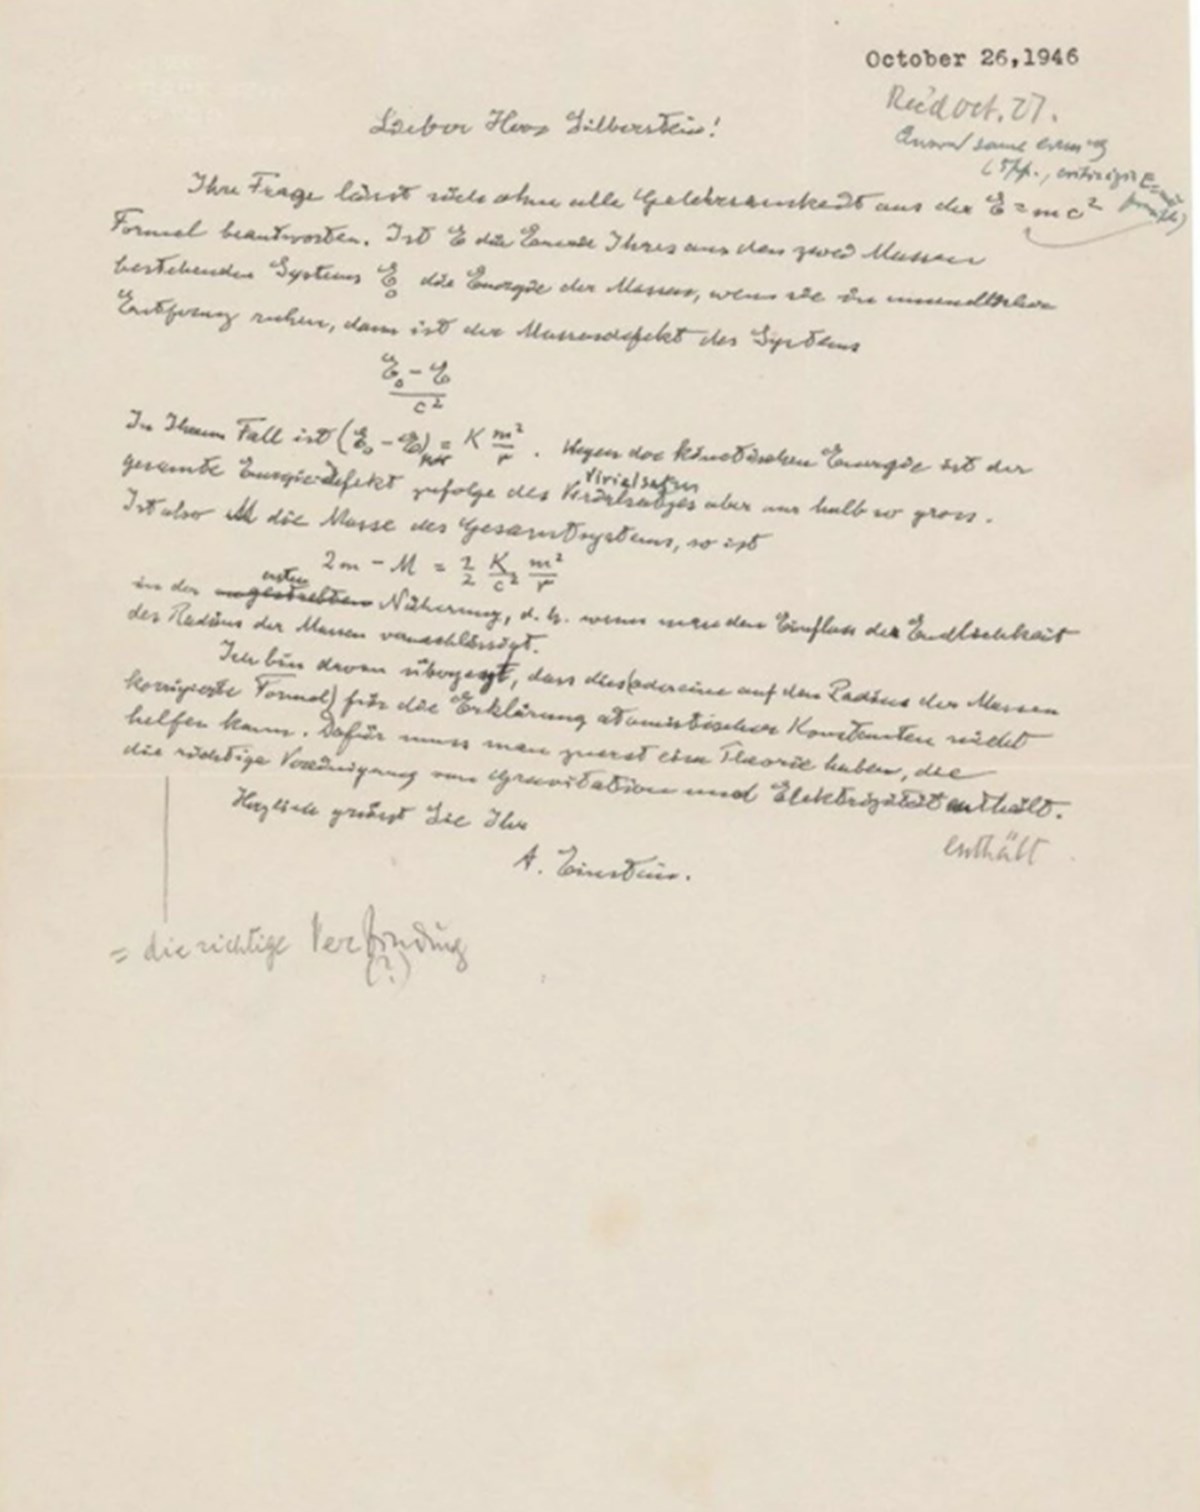 October 26,1946
Rec'd Oct. 27.
Answ'd same evening
(5pp., criticizing E=mc²
formula)
Lieber Herr Silberstein!
Ihre Frage lässt sich ohne alle Gelehrsamkeit aus der E = mc²
Formel beantworten. Ist E die Energie Ihres aus den zwei Massen
bestehenden Systems E₀ die Energie der Massen, wenn sie in unendlicher
Entfernung ruhen, dann ist der Massendefekt des Systems
E₀ - E
c²
In Ihrem Fall ist (E₀ - E) = K m²/r . Wegen der kinetischen Energie ist der
Virialsatzes
gesamte Energie-Defekt zufolge des Virialsatzes aber nur halb so gross.
Ist also M die Masse des Gesamtsystems, so ist
2m - M = 1/2 K/c² m²/r
ersten
in der Näherung, d. h. wenn man den Einfluss der Endlichkeit
des Radius der Massen vernachlässigt.
Ich bin davon überzeugt, dass dies (oder eine auf den Radius der Massen
korrigierte Formel) für die Erklärung atomistischer Konstanten nicht
helfen kann. Dafür muss man zuerst eine Theorie haben, die
die richtige Vereinigung von Gravitation und Elektrizität enthält.
enthält
Herzlich grüsst Sie Ihr
A. Einstein.
= die richtige Verbindung
(?)